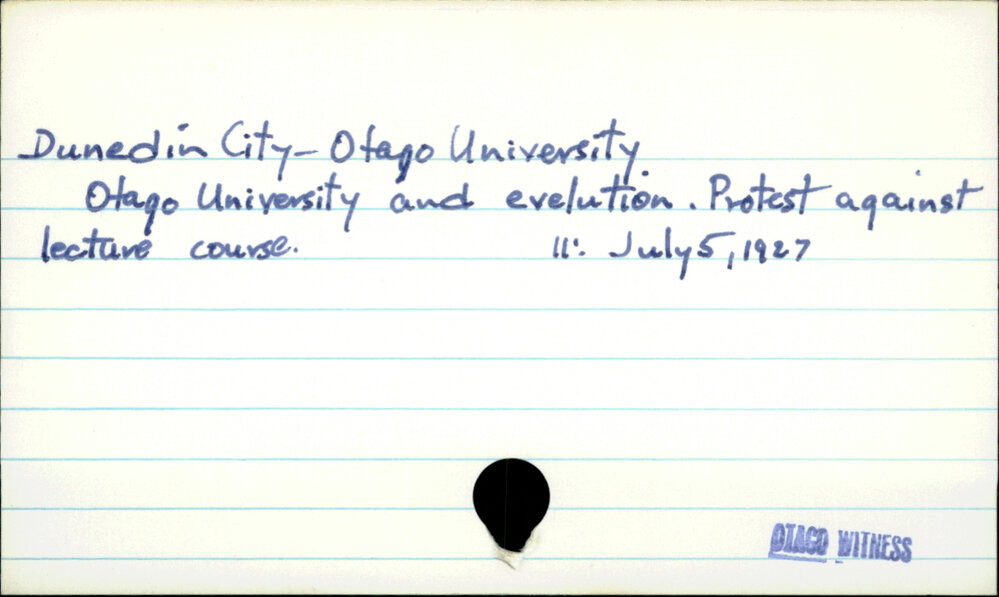 Dunedin City - Otago University
Otago University and evelution. Protest against
lecture course. 11: July 5, 1927
OTAGO WITNESS